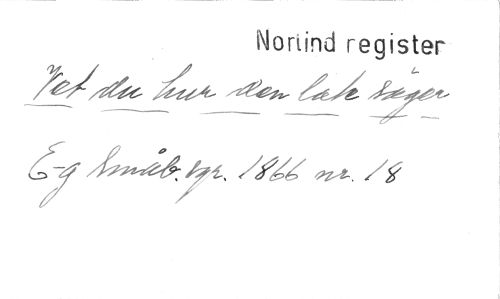 Norlind register
Vet du hur den late säger
E-g Småb. spr. 1866 nr. 18